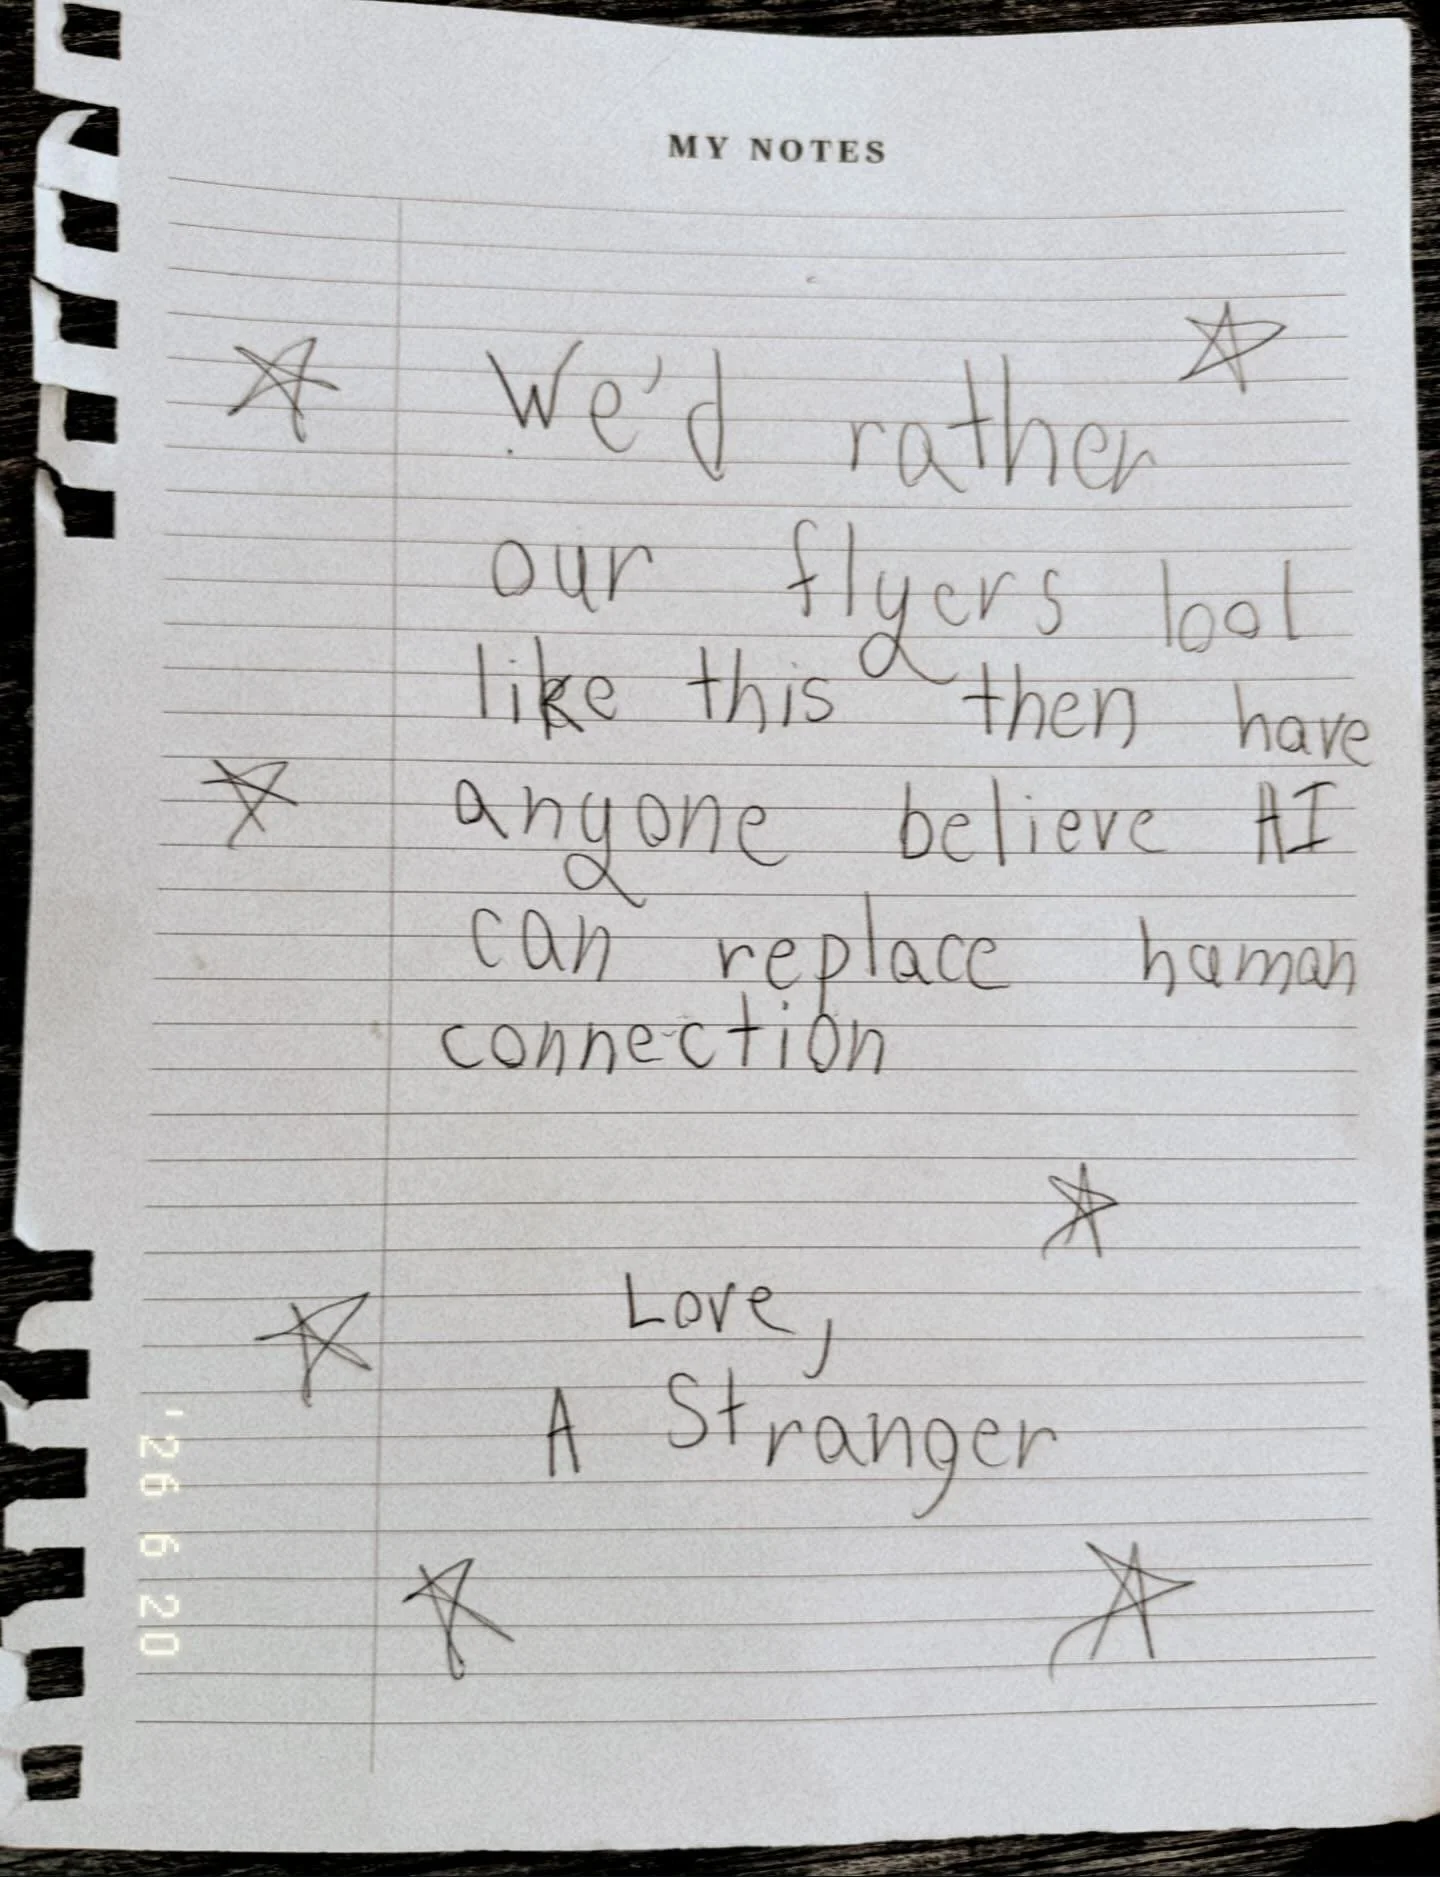 MY NOTES
We'd rather
our flyers look
like this then have
anyone believe AI
can replace human
connection
Love,
A Stranger
'26 6 20